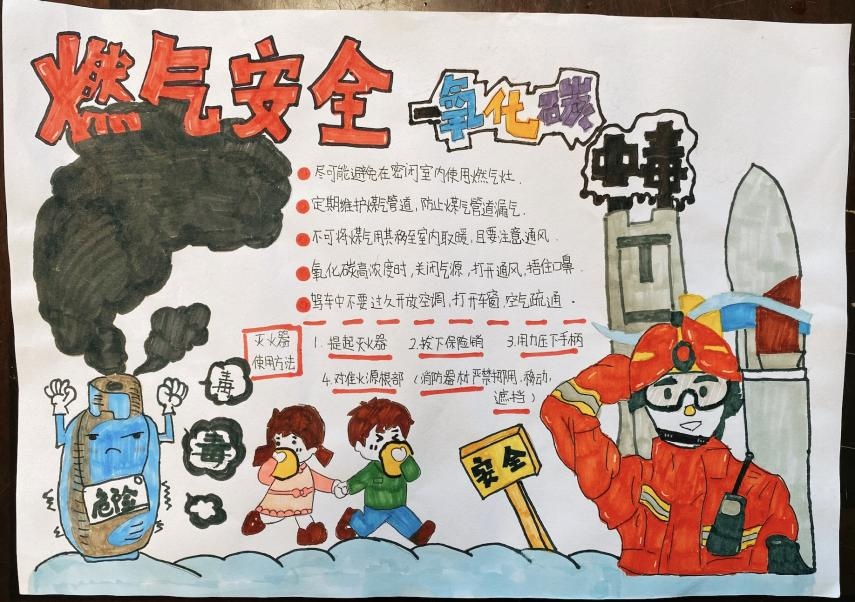 燃气安全
一氧化碳
中毒
尽可能避免在密闭室内使用燃气灶.
定期维护煤气管道,防止煤气管道漏气.
不可将煤气用具移至室内取暖,且要注意通风.
氧化碳高浓度时,关闭气源,打开通风,捂住口鼻.
驾车中不要过久开放空调,打开车窗,空气疏通.
灭火器
使用方法
1.提起灭火器 2.拔下保险销 3.用力压下手柄
4.对准火源根部(消防器材严禁挪用.移动,
遮挡)
毒
毒
危险
安全